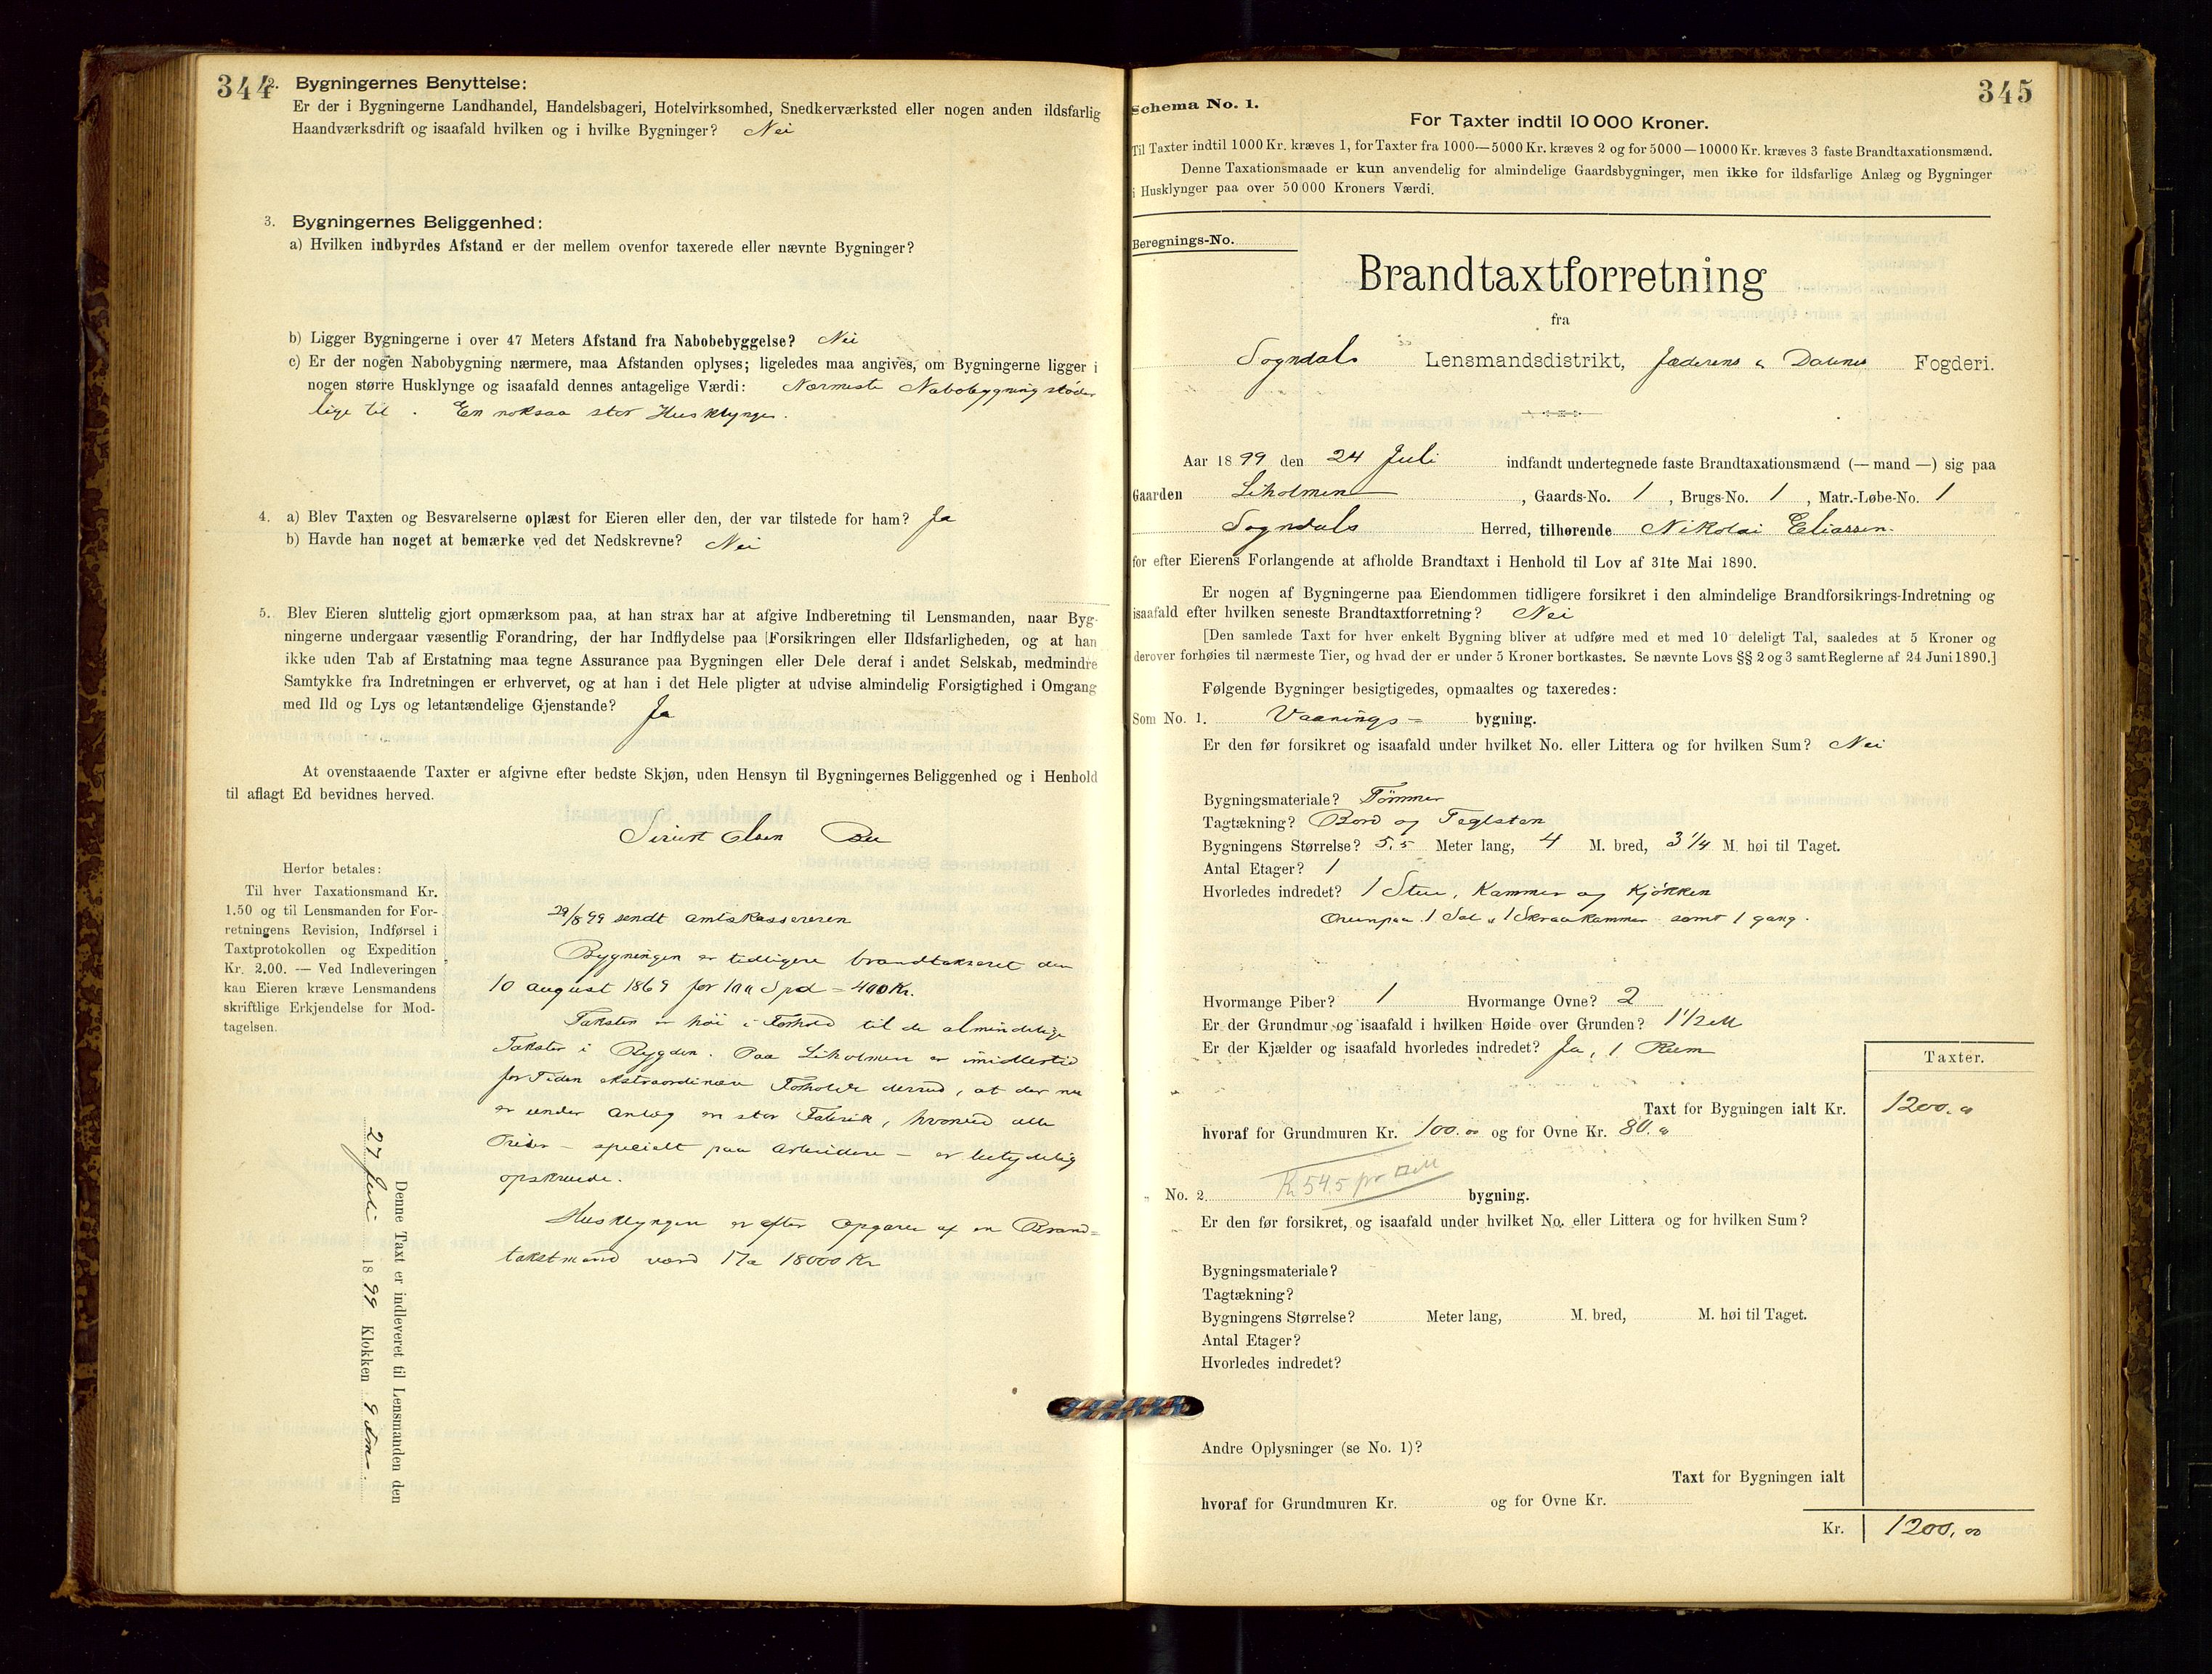 344
2. Bygningernes Benyttelse:
Er der i Bygningerne Landhandel, Handelsbageri, Hotelvirksomhed, Snedkerværksted eller nogen anden ildsfarlig
Haandværksdrift og isaafald hvilken og i hvilke Bygninger? Nei
3. Bygningernes Beliggenhed:
a) Hvilken indbyrdes Afstand er der mellem ovenfor taxerede eller nævnte Bygninger?
b) Ligger Bygningerne i over 47 Meters Afstand fra Nabobebyggelse? Nei
c) Er der nogen Nabobygning nærmere, maa Afstanden oplyses; ligeledes maa angives, om Bygningerne ligger i
nogen større Husklynge og isaafald dennes antagelige Værdi: Nærmeste Nabobygning støder
lige til. En noksaa stor Husklynge.
4. a) Blev Taxten og Besvarelserne oplæst for Eieren eller den, der var tilstede for ham? Ja
b) Havde han noget at bemærke ved det Nedskrevne? Nei
5. Blev Eieren sluttelig gjort opmærksom paa, at han strax har at afgive Indberetning til Lensmanden, naar Byg-
ningerne undergaar væsentlig Forandring, der har Indflydelse paa Forsikringen eller Ildsfarligheden, og at han
ikke uden Tab af Erstatning maa tegne Assurance paa Bygningen eller Dele deraf i andet Selskab, medmindre
Samtykke fra Indretningen er erhvervet, og at han i det Hele pligter at udvise almindelig Forsigtighed i Omgang
med Ild og Lys og letantændelige Gjenstande? Ja
At ovenstaaende Taxter er afgivne efter bedste Skjøn, uden Hensyn til Bygningernes Beliggenhed og i Henhold
til aflagt Ed bevidnes herved.
Sivert Olsen
Herfor betales:
Til hver Taxationsmand Kr.
1.50 og til Lensmanden for For-
retningens Revision, Indførsel i
Taxtprotokollen og Expedition
Kr. 2.00. — Ved Indleveringen
kan Eieren kræve Lensmandens
skriftlige Erkjendelse for Mod-
tagelsen.
29/8 99 sendt amtskassereren
Bygningen er tidligere brandtakseret den
10 august 1869 for 100 Spd = 400 Kr.
Taksten er høi i Forhold til de almindelige
Takster i Bygden. Paa Liholmen er imidlertid
for Tiden ekstraordinære Forholde derved, at der nu
er under Anlæg en stor Fabrik, hvorved alle
Priser – specielt paa Arbeidere – er betydelig
opskruede.
Husklyngen er efter Opgave af en Brand-
takstmand værd 17 a 18000 Kr
Denne Taxt er indleveret til Lensmanden den
27 Juli 1899 Klokken 9 Fm.
345
Schema No. 1.
For Taxter indtil 10 000 Kroner.
Til Taxter indtil 1000 Kr. kræves 1, for Taxter fra 1000—5000 Kr. kræves 2 og for 5000—10000 Kr. kræves 3 faste Brandtaxationsmænd.
Denne Taxationsmaade er kun anvendelig for almindelige Gaardsbygninger, men ikke for ildsfarlige Anlæg og Bygninger
i Husklynger paa over 50 000 Kroners Værdi.
Beregnings-No.
Brandtaxtforretning
fra
Sogndals Lensmandsdistrikt, Jæderens & Dalenes Fogderi.
Aar 1899 den 24 Juli indfandt undertegnede faste Brandtaxationsmænd (— mand —) sig paa
Gaarden Liholmen, Gaards-No. 1, Brugs-No. 1, Matr.-Løbe-No. 1
Sogndals Herred, tilhørende Nikolai Eliassen
for efter Eierens Forlangende at afholde Brandtaxt i Henhold til Lov af 31te Mai 1890.
Er nogen af Bygningerne paa Eiendommen tidligere forsikret i den almindelige Brandforsikrings-Indretning og
isaafald efter hvilken seneste Brandtaxtforretning? Nei
[Den samlede Taxt for hver enkelt Bygning bliver at udføre med et med 10 deleligt Tal, saaledes at 5 Kroner og
derover forhøies til nærmeste Tier, og hvad der er under 5 Kroner bortkastes. Se nævnte Lovs §§ 2 og 3 samt Reglerne af 24 Juni 1890.]
Følgende Bygninger besigtigedes, opmaaltes og taxeredes:
Som No. 1. Vaanings- bygning.
Er den før forsikret og isaafald under hvilket No. eller Littera og for hvilken Sum? Nei
Bygningsmateriale? Tømmer
Tagtækning? Bord og Teglsten
Bygningens Størrelse? 5,5 Meter lang, 4 M. bred, 3 1/4 M. høi til Taget.
Antal Etager? 1
Hvorledes indredet? 1 Stue, Kammer og Kjøkken
Ovenpaa 1 Sal, 1 Skraakammer samt 1 gang.
Hvormange Piber? 1 Hvormange Ovne? 2
Er der Grundmur og isaafald i hvilken Høide over Grunden? 1 1/2 M
Er der Kjælder og isaafald hvorledes indredet? Ja, 1 Rum
Taxter.
Taxt for Bygningen ialt Kr. 1200.
hvoraf for Grundmuren Kr. 100.00 og for Ovne Kr. 80.
Kr 54.5 pr □M
" No. 2. bygning.
Er den før forsikret, og isaafald under hvilket No. eller Littera og for hvilken Sum?
Bygningsmateriale?
Tagtækning?
Bygningens Størrelse? Meter lang, M. bred, M. høi til Taget.
Antal Etager?
Hvorledes indredet?
Andre Oplysninger (se No. 1)?
Taxt for Bygningen ialt
hvoraf for Grundmuren Kr. og for Ovne Kr.
Kr. 1200,00